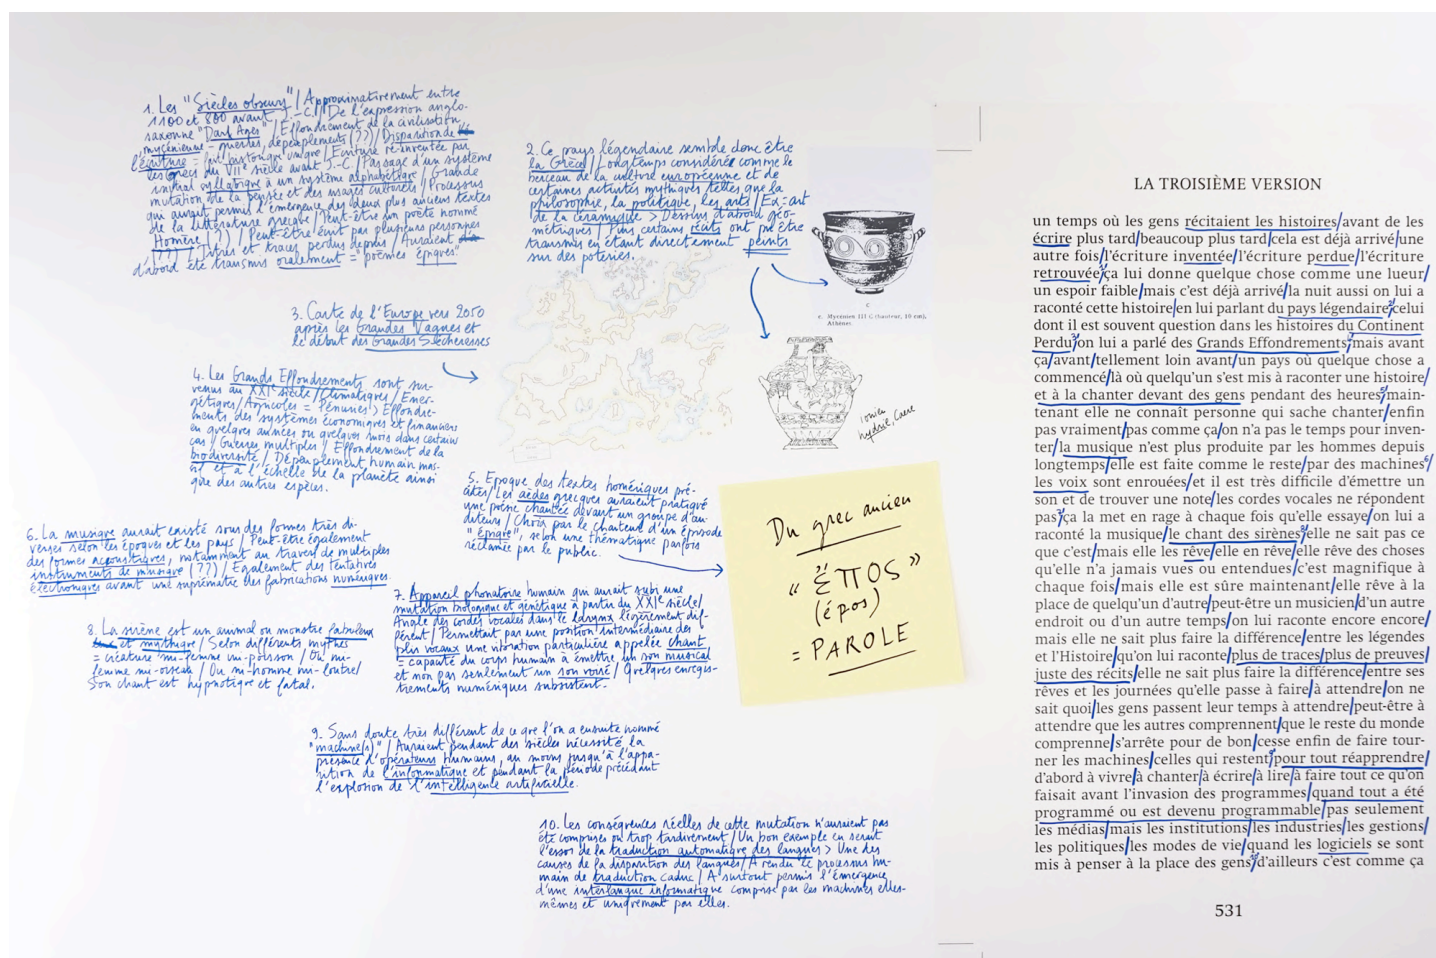 1. Les "Siècles obscurs" / Approximativement entre
1100 et 800 avant J.-C. / De l'expression anglo-
saxonne "Dark Ages" / Effondrement de la civilisation
mycénienne = guerres, dépeuplements (??) / Disparition de
l'écriture = fait historique unique / Ecriture ré-inventée par
les grecs du VIIe siècle avant J.-C. / Passage d'un système
initial syllabique à un système alphabétique / Grande
mutation de la pensée et des usages culturels / Processus
qui aurait permis l'émergence des deux plus anciens textes
de la littérature grecque / Peut-être un poète nommé
Homère (?) / Peut-être écrit par plusieurs personnes
(??) / Livres et traces perdus depuis / Auraient
d'abord été transmis oralement = "poèmes épiques".
2. Ce pays légendaire semble donc être
la Grèce / Longtemps considérée comme le
berceau de la culture européenne et de
certaines activités mythiques telles que la
philosophie, la politique, les arts / Ex = art
de la céramique > Dessins d'abord géo-
métriques / Puis certains récits ont pu être
transmis en étant directement peints
sur des poteries.
c
c. Mycenien III C (hauteur, 10 cm),
Athènes
3. Carte de l'Europe vers 2050
après les Grandes Vagues et
le début des Grandes Sécheresses
ionien
hydrie, Caere
4. Les Grands Effondrements sont sur-
venus au XXIe siècle / Climatiques / Ener-
gétiques / Agricoles = Pénuries > Effondre-
ments des systèmes économiques et financiers
en quelques années ou quelques mois dans certains
cas / Guerres multiples / Effondrement de la
biodiversité / Dépeuplement humain mas-
sif et à l'échelle de la planète ainsi
que des autres espèces.
5. Epoque des textes homériques pré-
cités / Les aèdes grecques auraient pratiqué
une poésie chantée devant un groupe d'au-
diteurs / Choix par le chanteur d'un épisode
"épique", selon une thématique parfois
réclamée par le public.
Du grec ancien
"ἔπος"
(épos)
= PAROLE
6. La musique aurait existé sous des formes très di-
verses selon les époques et les pays / Peut-être également
des formes acoustiques, notamment au travers de multiples
instruments de musique (??) / Egalement des tentatives
électroniques avant une suprématie des fabrications numériques.
7. Appareil phonatoire humain qui aurait subi une
mutation biologique et génétique à partir du XXIe siècle /
Angle des cordes vocales dans le larynx légèrement dif-
férent / Permettant par une position intermédiaire des
plis vocaux une vibration particulière appelée chant
= capacité du corps humain à émettre un son musical
et non pas seulement un son voisé / Quelques enregis-
trements numériques subsistent.
8. La sirène est un animal ou monstre fabuleux
et mythique / Selon différents mythes
= créature mi-femme mi-poisson / Ou mi-
femme mi-oiseau / Ou mi-homme mi-loutre /
Son chant est hypnotique et fatal.
9. Sans doute très différent de ce que l'on a ensuite nommé
"machine(s)" / Auraient pendant des siècles nécessité la
présence d'opérateurs humains, au moins jusqu'à l'appa-
rition de l'informatique et pendant la période précédant
l'explosion de l'intelligence artificielle.
10. Les conséquences réelles de cette mutation n'auraient pas
été comprises ou trop tardivement / Un bon exemple en serait
l'essor de la traduction automatique des langues > Une des
causes de la disparition des langues / A rendu le processus hu-
main de traduction caduc / A surtout permis l'émergence
d'une interlangue informatique comprise par les machines elles-
mêmes et uniquement par elles.
LA TROISIÈME VERSION
un temps où les gens récitaient les histoires/avant de les
écrire plus tard/beaucoup plus tard/cela est déjà arrivé/une
autre fois/l'écriture inventée/l'écriture perdue/l'écriture
retrouvée/ça lui donne quelque chose comme une lueur/
un espoir faible/mais c'est déjà arrivé/la nuit aussi on lui a
raconté cette histoire/en lui parlant du pays légendaire/celui
dont il est souvent question dans les histoires du Continent
Perdu/on lui a parlé des Grands Effondrements/mais avant
ça/avant/tellement loin avant/un pays où quelque chose a
commencé/là où quelqu'un s'est mis à raconter une histoire/
et à la chanter devant des gens pendant des heures/main-
tenant elle ne connaît personne qui sache chanter/enfin
pas vraiment/pas comme ça/on n'a pas le temps pour inven-
ter/la musique n'est plus produite par les hommes depuis
longtemps/elle est faite comme le reste/par des machines⁶/
les voix sont enrouées/et il est très difficile d'émettre un
son et de trouver une note/les cordes vocales ne répondent
pas/ça la met en rage à chaque fois qu'elle essaye/on lui a
raconté la musique/le chant des sirènes/elle ne sait pas ce
que c'est/mais elle les rêve/elle en rêve/elle rêve des choses
qu'elle n'a jamais vues ou entendues/c'est magnifique à
chaque fois/mais elle est sûre maintenant/elle rêve à la
place de quelqu'un d'autre/peut-être un musicien/d'un autre
endroit ou d'un autre temps/on lui raconte encore encore/
mais elle ne sait plus faire la différence/entre les légendes
et l'Histoire/qu'on lui raconte/plus de traces/plus de preuves/
juste des récits/elle ne sait plus faire la différence/entre ses
rêves et les journées qu'elle passe à faire/à attendre/on ne
sait quoi/les gens passent leur temps à attendre/peut-être à
attendre que les autres comprennent/que le reste du monde
comprenne/s'arrête pour de bon/cesse enfin de faire tour-
ner les machines/celles qui restent/pour tout réapprendre/
d'abord à vivre/à chanter/à écrire/à lire/à faire tout ce qu'on
faisait avant l'invasion des programmes/quand tout a été
programmé ou est devenu programmable/pas seulement
les médias/mais les institutions/les industries/les gestions/
les politiques/les modes de vie/quand les logiciels se sont
mis à penser à la place des gens/d'ailleurs c'est comme ça
531